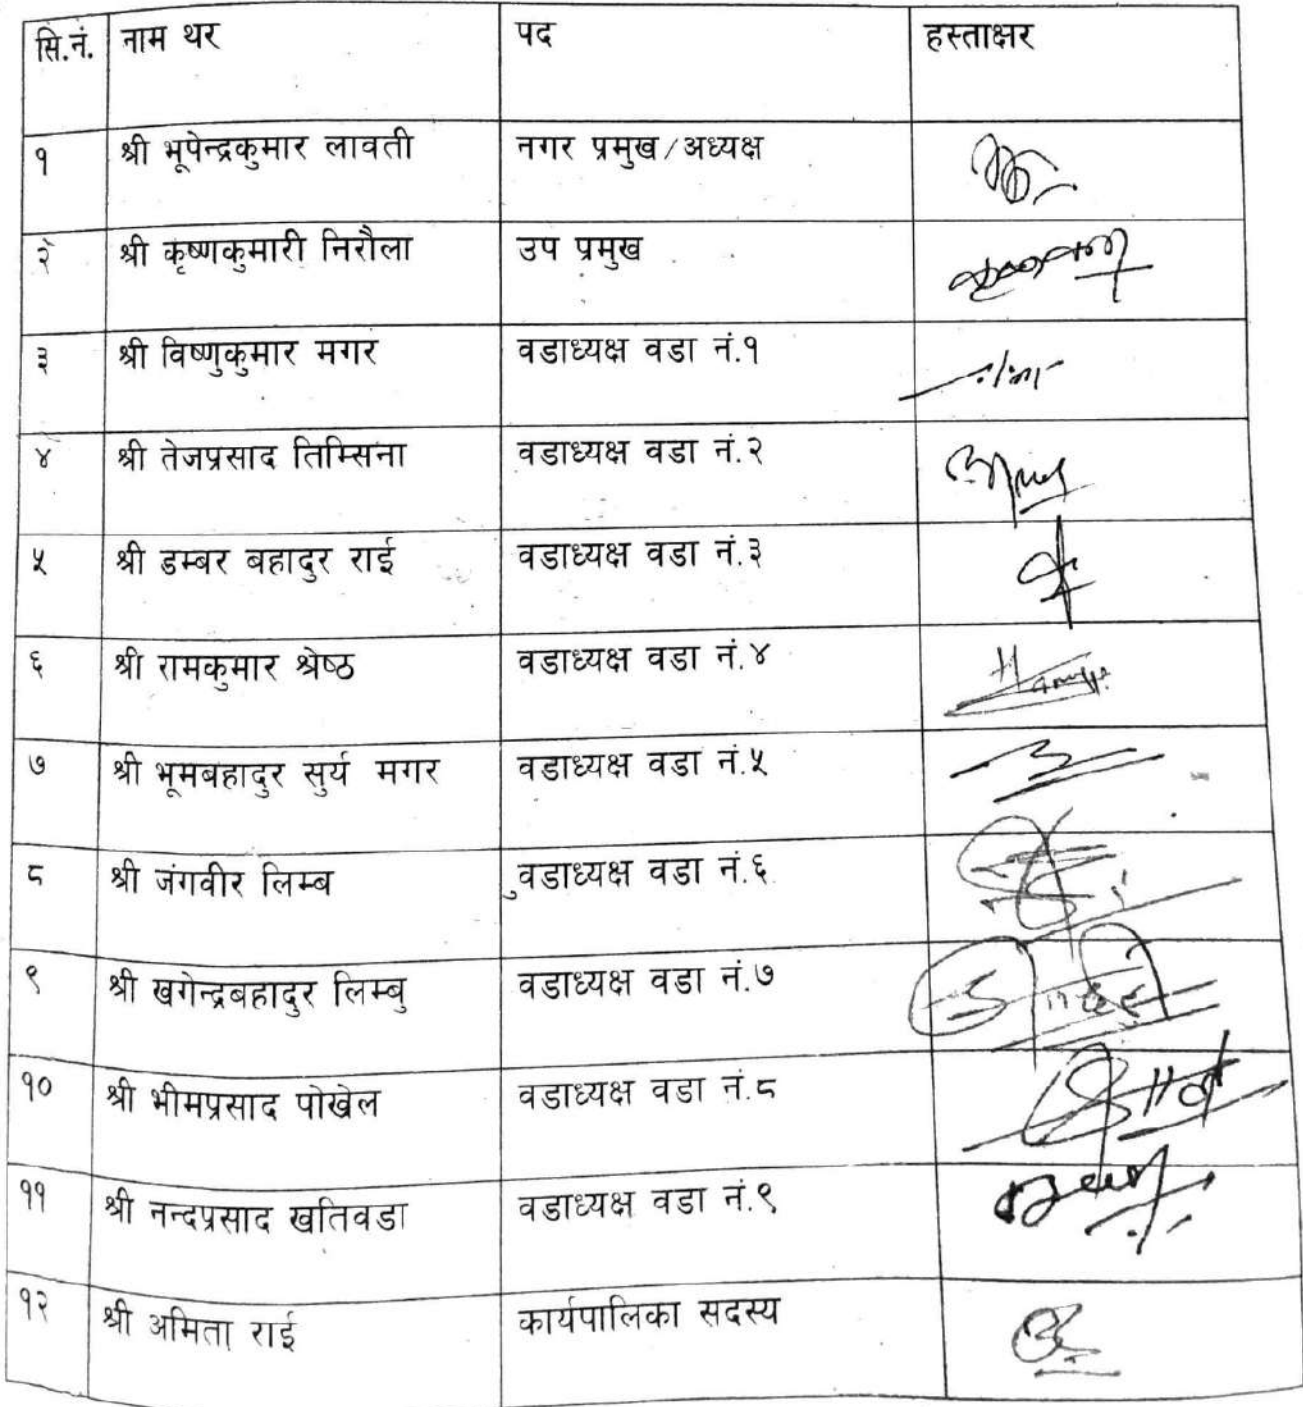 सि.नं. नाम थर पद हस्ताक्षर
१ श्री भूपेन्द्रकुमार लावती नगर प्रमुख/अध्यक्ष
२ श्री कृष्णकुमारी निरौला उप प्रमुख
३ श्री विष्णुकुमार मगर वडाध्यक्ष वडा नं.१
४ श्री तेजप्रसाद तिम्सिना वडाध्यक्ष वडा नं.२
५ श्री डम्बर बहादुर राई वडाध्यक्ष वडा नं.३
६ श्री रामकुमार श्रेष्ठ वडाध्यक्ष वडा नं.४
७ श्री भूमबहादुर सुर्य मगर वडाध्यक्ष वडा नं.५
८ श्री जंगवीर लिम्ब वडाध्यक्ष वडा नं.६
९ श्री खगेन्द्रबहादुर लिम्बु वडाध्यक्ष वडा नं.७
१० श्री भीमप्रसाद पोखेल वडाध्यक्ष वडा नं.८
११ श्री नन्दप्रसाद खतिवडा वडाध्यक्ष वडा नं.९
१२ श्री अमिता राई कार्यपालिका सदस्य